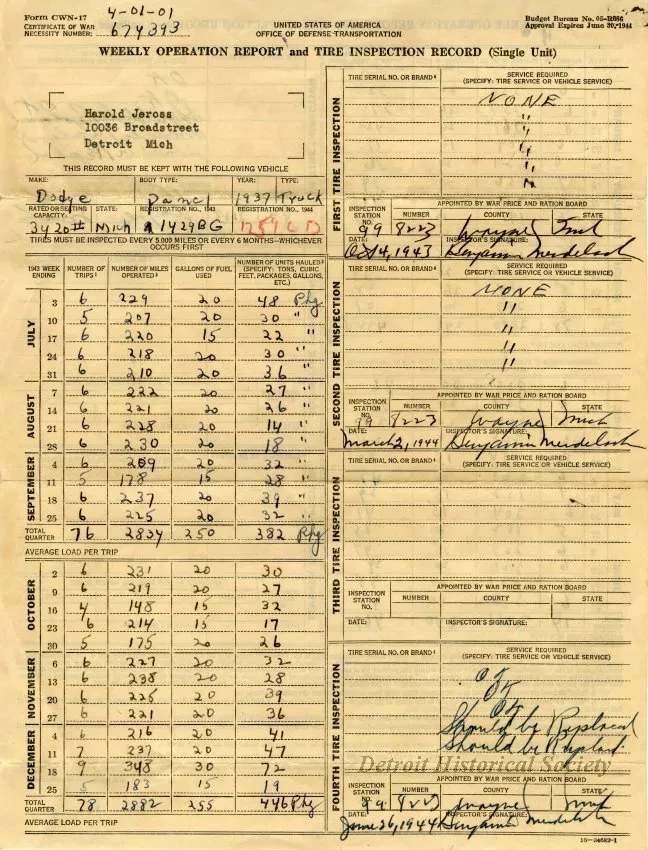 Form CWN-17
4-01-01
CERTIFICATE OF WAR
NECESSITY NUMBER: 674393
UNITED STATES OF AMERICA
OFFICE OF DEFENSE TRANSPORTATION
Budget Bureau No. 05-R086
Approval Expires June 30, 1944
WEEKLY OPERATION REPORT and TIRE INSPECTION RECORD (Single Unit)
Harold Jeross
10036 Broadstreet
Detroit Mich
THIS RECORD MUST BE KEPT WITH THE FOLLOWING VEHICLE
MAKE: BODY TYPE: YEAR: TYPE:
Dodge Panel 1937 Truck
RATED OR SEATING CAPACITY: STATE: REGISTRATION NO., 1943 REGISTRATION NO., 1944
3420# Mich 1429BG
TIRES MUST BE INSPECTED EVERY 5,000 MILES OR EVERY 6 MONTHS—WHICHEVER OCCURS FIRST
1943 WEEK ENDING NUMBER OF TRIPS¹ NUMBER OF MILES OPERATED² GALLONS OF FUEL USED NUMBER OF UNITS HAULED³ (SPECIFY: TONS, CUBIC FEET, PACKAGES, GALLONS, ETC.)
JULY
3 6 229 20 48 Pkg
10 5 207 20 30 "
17 6 220 15 22 "
24 6 218 20 30 "
31 6 210 20 36 "
AUGUST
7 6 222 20 27 "
14 6 221 20 26 "
21 6 228 20 14 "
28 6 230 20 18 "
SEPTEMBER
4 6 209 20 32 "
11 5 178 15 28 "
18 6 237 20 39 "
25 6 225 20 32 "
TOTAL QUARTER 76 2834 250 382 Pkg
AVERAGE LOAD PER TRIP
OCTOBER
2 6 231 20 30
9 6 219 20 27
16 4 148 15 32
23 6 214 15 17
30 5 175 20 26
NOVEMBER
6 6 227 20 32
13 6 238 20 28
20 6 225 20 39
27 6 221 20 36
DECEMBER
4 6 216 20 41
11 7 237 20 47
18 9 348 30 72
25 5 183 15 19
TOTAL QUARTER 78 2882 255 446 Pkg
AVERAGE LOAD PER TRIP
FIRST TIRE INSPECTION
TIRE SERIAL NO. OR BRAND⁴ SERVICE REQUIRED
(SPECIFY: TIRE SERVICE OR VEHICLE SERVICE)
NONE
"
"
"
"
"
APPOINTED BY WAR PRICE AND RATION BOARD
INSPECTION STATION NO. NUMBER COUNTY STATE
99 8223 Wayne Mich
DATE: INSPECTOR'S SIGNATURE:
Oct 4, 1943 Benjamin
SECOND TIRE INSPECTION
TIRE SERIAL NO. OR BRAND⁴ SERVICE REQUIRED
(SPECIFY: TIRE SERVICE OR VEHICLE SERVICE)
NONE
"
"
"
"
APPOINTED BY WAR PRICE AND RATION BOARD
INSPECTION STATION NO. NUMBER COUNTY STATE
99 8223 Wayne Mich
DATE: INSPECTOR'S SIGNATURE:
March 2, 1944 Benjamin
THIRD TIRE INSPECTION
TIRE SERIAL NO. OR BRAND⁴ SERVICE REQUIRED
(SPECIFY: TIRE SERVICE OR VEHICLE SERVICE)
APPOINTED BY WAR PRICE AND RATION BOARD
INSPECTION STATION NO. NUMBER COUNTY STATE
DATE: INSPECTOR'S SIGNATURE:
FOURTH TIRE INSPECTION
TIRE SERIAL NO. OR BRAND⁴ SERVICE REQUIRED
(SPECIFY: TIRE SERVICE OR VEHICLE SERVICE)
Should be Replaced
Should be Replaced
Detroit Historical Society
APPOINTED BY WAR PRICE AND RATION BOARD
INSPECTION STATION NO. NUMBER COUNTY STATE
99 8223 Wayne Mich
DATE: INSPECTOR'S SIGNATURE:
June 26, 1944 Benjamin
16—34682-1